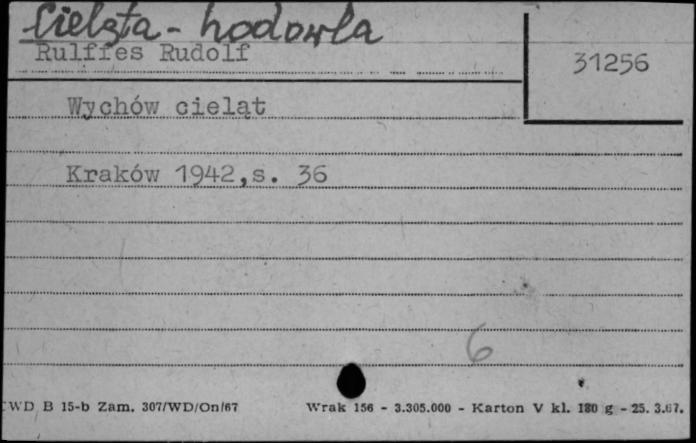 Cielęta - hodowla
Rulffes Rudolf
31256
Wychów cieląt
Kraków 1942,s. 36
6
WD B 15-b Zam. 307/WD/On/67 Wrak 156 - 3.305.000 - Karton V kl. 180 g - 25. 3.67.